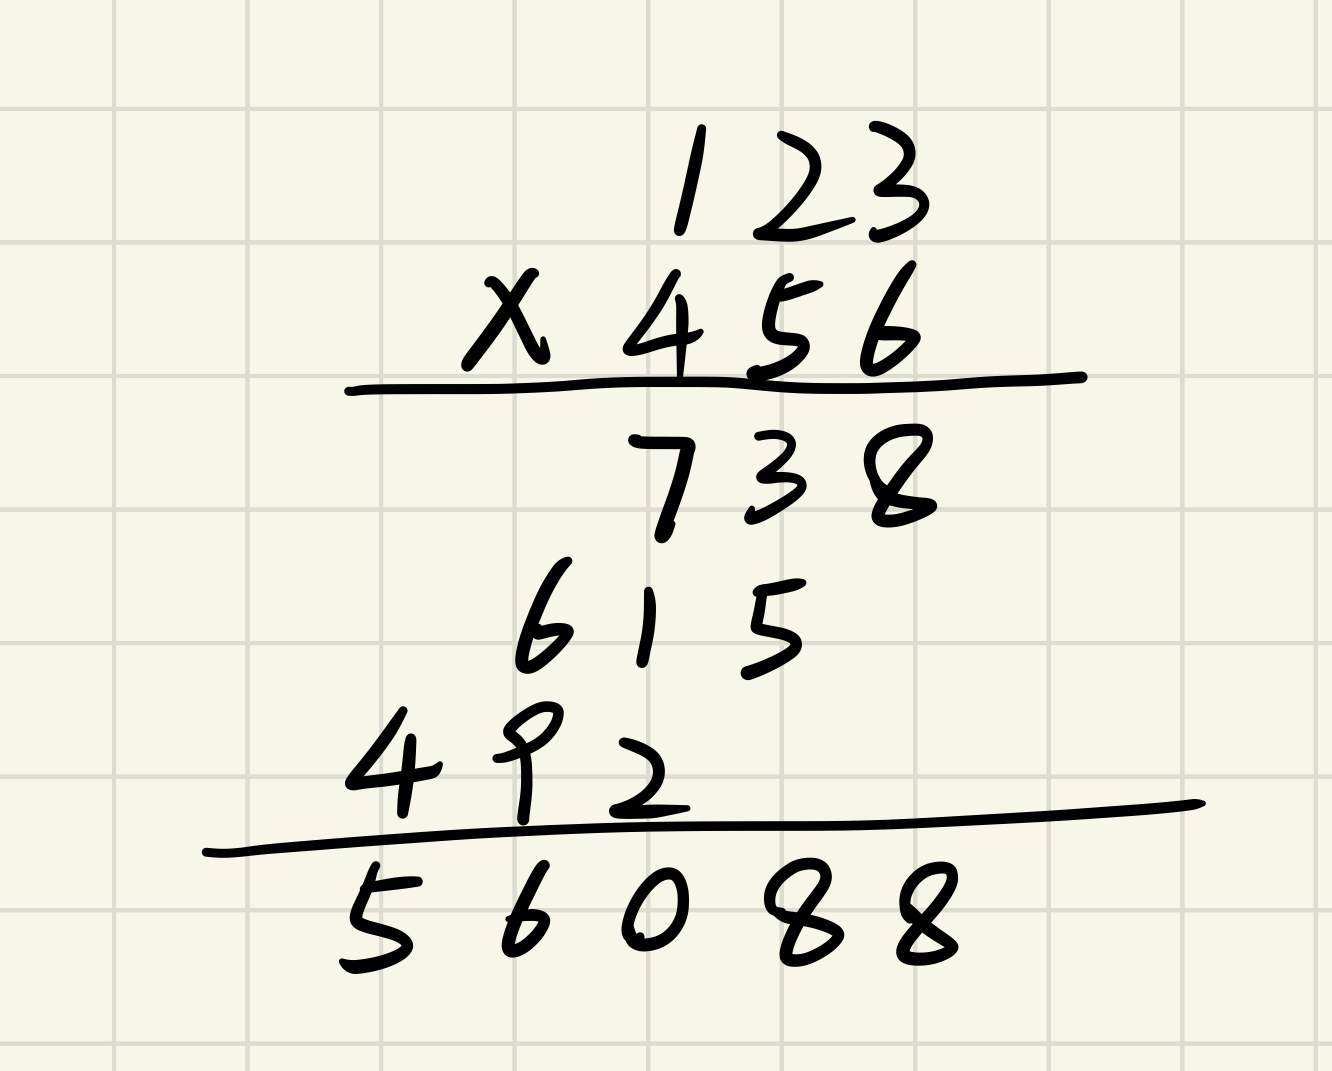 1 2 3
X 4 5 6
7 3 8
6 1 5
4 9 2
5 6 0 8 8